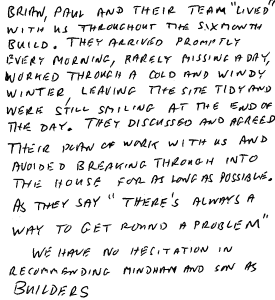 BRIAN, PAUL AND THEIR TEAM "LIVED"
WITH US THROUGHOUT THE SIXMONTH
BUILD. THEY ARRIVED PROMPTLY
EVERY MORNING, RARELY MISSING A DAY,
WORKED THROUGH A COLD AND WINDY
WINTER, LEAVING THE SITE TIDY AND
WERE STILL SMILING AT THE END OF
THE DAY. THEY DISCUSSED AND AGREED
THEIR PLAN OF WORK WITH US AND
AVOIDED BREAKING THROUGH INTO
THE HOUSE FOR AS LONG AS POSSIBLE.
AS THEY SAY "THERE'S ALWAYS A
WAY TO GET ROUND A PROBLEM"
WE HAVE NO HESITATION IN
RECOMMENDING MINDHAM AND SON AS
BUILDERS